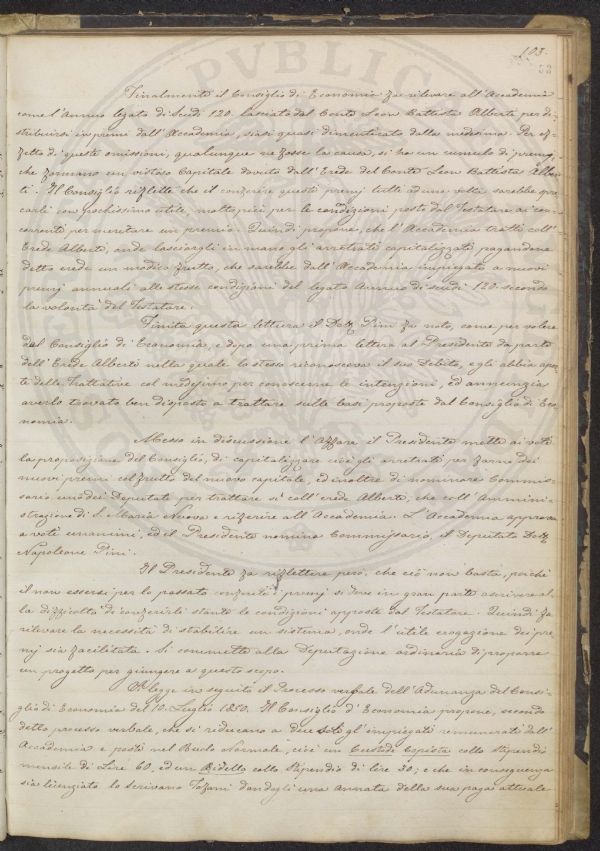 103.
52
Finalmente il Consiglio di Economia fa rilevare all'Accademia
come l'Annuo legato di Scudi 120 lasciato dal Conte Leon Battista Alberti per di-
stribuirsi in premi dall'Accademia, siasi quasi dimenticato dalla medesima. Per ef-
fetto di queste omissioni, qualunque ne fosse la causa, si ha un cumulo di premj,
che formano un vistoso Capitale dovuto dall'Erede del Conte Leon Battista Alber-
ti. Il Consiglio riflette che il conferire questi premj tutti ad una volta sarebbe spre-
carli con pochissimo utile, molto più per le condizioni poste dal Testatore ai con-
correnti per meritare un premio. Quindi propone, che l'Accademia tratti coll'
Erede Alberti, onde lasciargli in mano gli arretrati capitalizzati pagandone
detto erede un modico frutto, che sarebbe dall'Accademia impiegato a nuovi
premj annuali alle stesse condizioni del legato Annuo di scudi 120 secondo
la volontà del Testatore.
Finita questa lettura il Dott. Pini fa noto, come per volere
del Consiglio di Economia, e dopo una prima lettera al Presidente da parte
dell'Erede Alberti nella quale lo stesso riconosceva il suo Debito, egli abbia aper-
te delle Trattative col medesimo per conoscerne le intenzioni, ed annunzia
averlo trovato ben disposto a trattare sulle basi proposte dal Consiglio di Eco-
nomia.
Messo in discussione l'affare il Presidente mette ai voti
la proposizione del Consiglio, di capitalizzare cioè gli arretrati per farne dei
nuovi premi col frutto del nuovo capitale, ed inoltre di nominare Commis-
sario uno dei Deputati per trattare sì coll'erede Alberti, che coll'Ammini-
strazione di S. Maria Nuova e riferire all'Accademia. L'Accademia approva
a voti unanimi, ed il Presidente nomina Commissario, il Deputato Dott.
Napoleone Pini.
Il Presidente fa riflettere però, che ciò non basta, poiché
il non essersi per lo passato conferiti i premj si deve in gran parte ascrivere al-
la difficoltà di conferirli stante le condizioni apposte dal Testatore. Quindi fa
rilevare la necessità di stabilire un sistema, onde l'utile erogazione dei pre-
mj sia facilitata. Si commette alla Deputazione ordinaria di proporre
un progetto per giungere a questo scopo.
Si legge in seguito il Processo verbale dell'Adunanza del Consi-
glio di Economia del 10. Luglio 1850. Il Consiglio d'Economia propone, secondo
detto processo verbale, che si riducano a due soli gl'impiegati remunerati dall'
Accademia e posti nel Ruolo Normale, cioè un Custode Copista collo stipendio
mensile di Lire 60, ed un Bidello collo Stipendio di lire 30; e che in conseguenza
sia licenziato lo Scrivano Tofani dandogli una annata della sua paga attuale